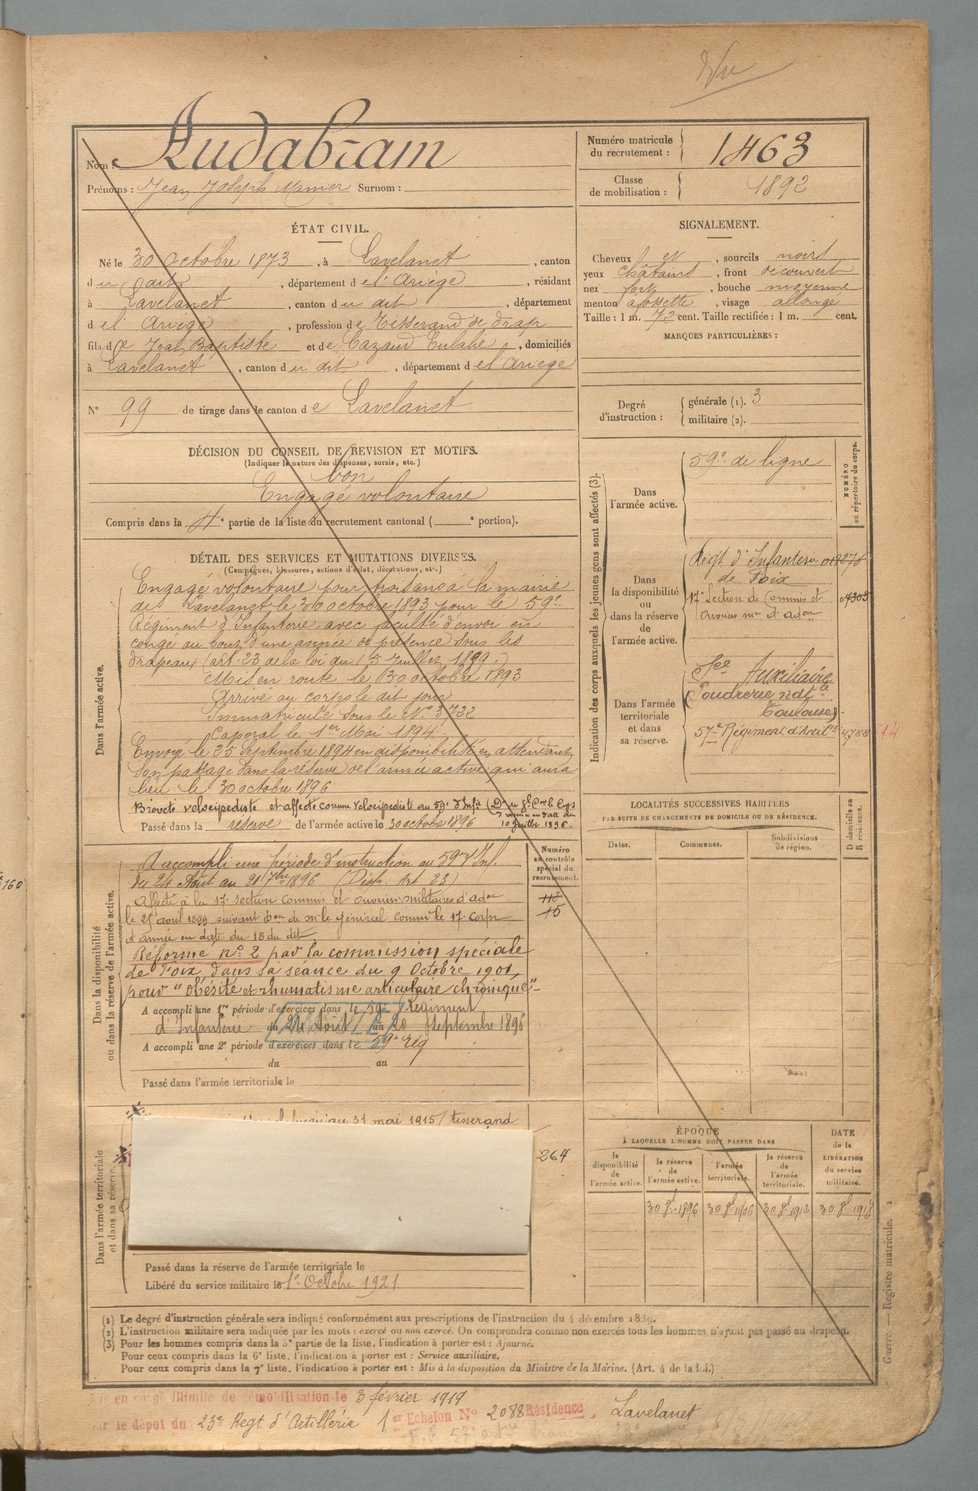 Vu
Nom : Audabram
Prénoms : Jean Joseph Surnom :
Numéro matricule du recrutement : 1463
Classe de mobilisation : 1892
ÉTAT CIVIL.
Né le 30 octobre 1873, à Lavelanet, canton
du dit, département de l'Ariège, résidant
à Lavelanet, canton du dit, département
de l'Ariège, profession de Tisserand de drap
fils de Jean Baptiste et de Cazaud Eulalie, domiciliés
à Lavelanet, canton du dit, département de l'Ariège
N° 99 de tirage dans le canton de Lavelanet
SIGNALEMENT.
Cheveux et sourcils noirs
yeux châtains, front découvert
nez fort, bouche moyenne
menton fossette, visage allongé
Taille : 1 m. 72 cent. Taille rectifiée : 1 m. cent.
MARQUES PARTICULIÈRES :
Degré d'instruction : générale (1). 3
militaire (2).
DÉCISION DU CONSEIL DE REVISION ET MOTIFS.
(Indiquer la nature des dispenses, sursis, etc.)
bon
Engagé volontaire
Compris dans la 4e partie de la liste du recrutement cantonal ( portion).
DÉTAIL DES SERVICES ET MUTATIONS DIVERSES.
(Campagnes, blessures, actions d'éclat, décorations, etc.)
Dans l'armée active.
Engagé volontaire pour trois ans à la mairie
de Lavelanet, le 30 octobre 1893 pour le 59e
Régiment d'Infanterie avec faculté d'envoi en
congé au bout d'une année de présence sous les
drapeaux (art. 23 de la loi du 15 Juillet 1889.)
Mis en route le 30 octobre 1893
Arrivé au corps le dit jour
Immatriculé sous le N° 3732
Caporal le 1er Mai 1894
Envoyé le 25 Septembre 1894 en disponibilité en attendant
son passage dans la réserve de l'armée active qui aura
lieu le 30 octobre 1896
Breveté vélocipédiste et affecté comme vélocipédiste au 59e d'Infie
10 Juillet 1896.
Passé dans la réserve de l'armée active le 30 octobre 1896
Indication des corps auxquels les jeunes gens sont affectés (3).
NUMÉRO au répertoire du corps.
Dans l'armée active.
59e de ligne
Dans la disponibilité ou dans la réserve de l'armée active.
Régt d'Infanterie
de Foix
17e Section de Commis et
Ouvriers mres d'adon
Dans l'armée territoriale et dans sa réserve.
Sce Auxiliaire
(Poudrerie natle
Toulouse)
57e Régiment d'Artie
LOCALITÉS SUCCESSIVES HABITÉES
PAR SUITE DE CHANGEMENTS DE DOMICILE OU DE RÉSIDENCE.
Dates.
Communes.
Subdivisions de région.
D domicile ou R résidence.
Numéro au contrôle spécial du recrutement.
Dans la disponibilité ou dans la réserve de l'armée active.
A accompli une période d'instruction au 59e d'Inf.
du 24 Août au 20 7bre 1896 (Disp. Art 23)
Affecté à la 17e section commis et ouvriers militaires d'adon
le 25 avril 1899 suivant don de mr le général commt le 17e Corps
d'armée en date du 18 du dit
Réformé n° 2 par la commission spéciale
de Foix dans sa séance du 9 Octobre 1901
pour "obésité et rhumatisme articulaire chronique"
A accompli une 1re période d'exercices dans le 59e Régiment
d'Infanterie du 24 Août au 20 Septembre 1896
A accompli une 2e période d'exercices dans le 59e Rég
du au
Passé dans l'armée territoriale le
112
15
Dans l'armée territoriale et dans sa réserve.
jusqu'au 31 mai 1915 (tisserand
264
Passé dans la réserve de l'armée territoriale le
Libéré du service militaire le 1er Octobre 1921
ÉPOQUE
À LAQUELLE L'HOMME DOIT PASSER DANS
la disponibilité de l'armée active.
la réserve de l'armée active.
l'armée territoriale.
la réserve de l'armée territoriale.
DATE de la LIBÉRATION du service militaire.
30 8bre 1896
30 8bre 1906
30 8bre 1912
30 8bre 1918
(1) Le degré d'instruction générale sera indiqué conformément aux prescriptions de l'instruction du 4 décembre 1889.
(2) L'instruction militaire sera indiquée par les mots : exercé ou non exercé. On comprendra comme non exercés tous les hommes n'ayant pas passé au drapeau.
(3) Pour les hommes compris dans la 5e partie de la liste, l'indication à porter est : Ajourné.
Pour ceux compris dans la 6e liste, l'indication à porter est : Service auxiliaire.
Pour ceux compris dans la 7e liste, l'indication à porter est : Mis à la disposition du Ministre de la Marine. (Art. 4 de la loi.)
Guerre. — Registre matricule.
en congé illimité de démobilisation le 3 février 1919
le dépôt du 23e Régt d'Artillerie 1er Echelon N° 2088 Résidence, Lavelanet